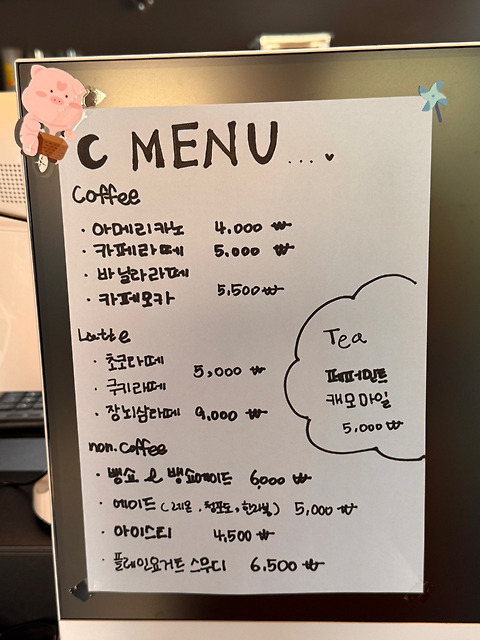 C MENU ... ♥
Coffee
· 아메리카노 4.000 ₩
· 카페라떼 5.000 ₩
· 바닐라라떼
· 카페모카 5,500 ₩
Latte
· 초코라떼
· 쿠키라떼 5,000 ₩
· 장뇌삼라떼 9,000 ₩
Tea
페퍼민트
캐모마일
5.000 ₩
non.coffee
· 뱅쇼 & 뱅쇼에이드 6,000 ₩
· 에이드 (레몬, 청포도, 한라봉) 5,000 ₩
· 아이스티 4,500 ₩
· 플레인요거트 스무디 6.500 ₩